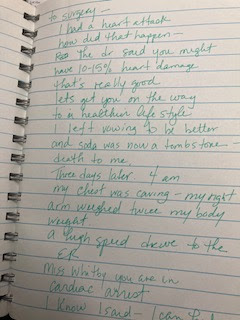 to surgery —
I had a heart attack
how did that happen —
The dr said you might
have 10-15% heart damage
that's really good
let's get you on the way
to a healthier life style
I left vowing to be better
and soda was now a tombstone —
death to me.
Three days later 4 am
my chest was caving — my right
arm weighed twice my body
weight
a high speed chewe to the
ER
Miss Whitby you are in
cardiac arrest
I know I said — I can